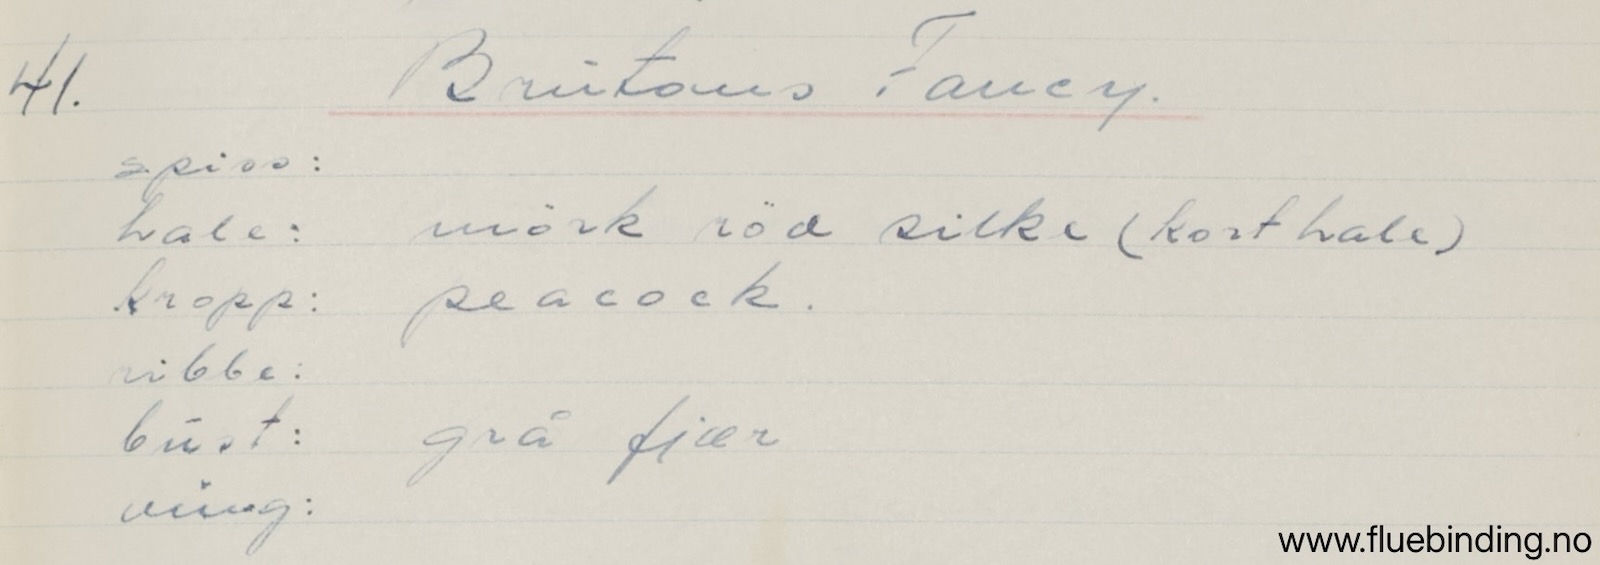 41. Brütons Fancy.
spiss:
hale: mörk röd silke (kort hale)
kropp: peacock.
ribbe:
büst: grå fjær
ving:
www.fluebinding.no